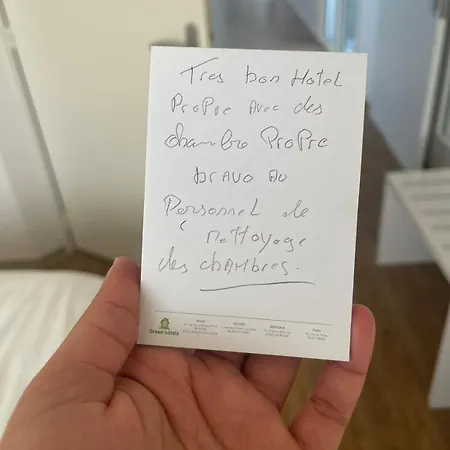 Tres bon Hotel
Propre avec des
chambre Propre
bravo au
Personnel de
nettoyage
des chambres.
Green hôtels